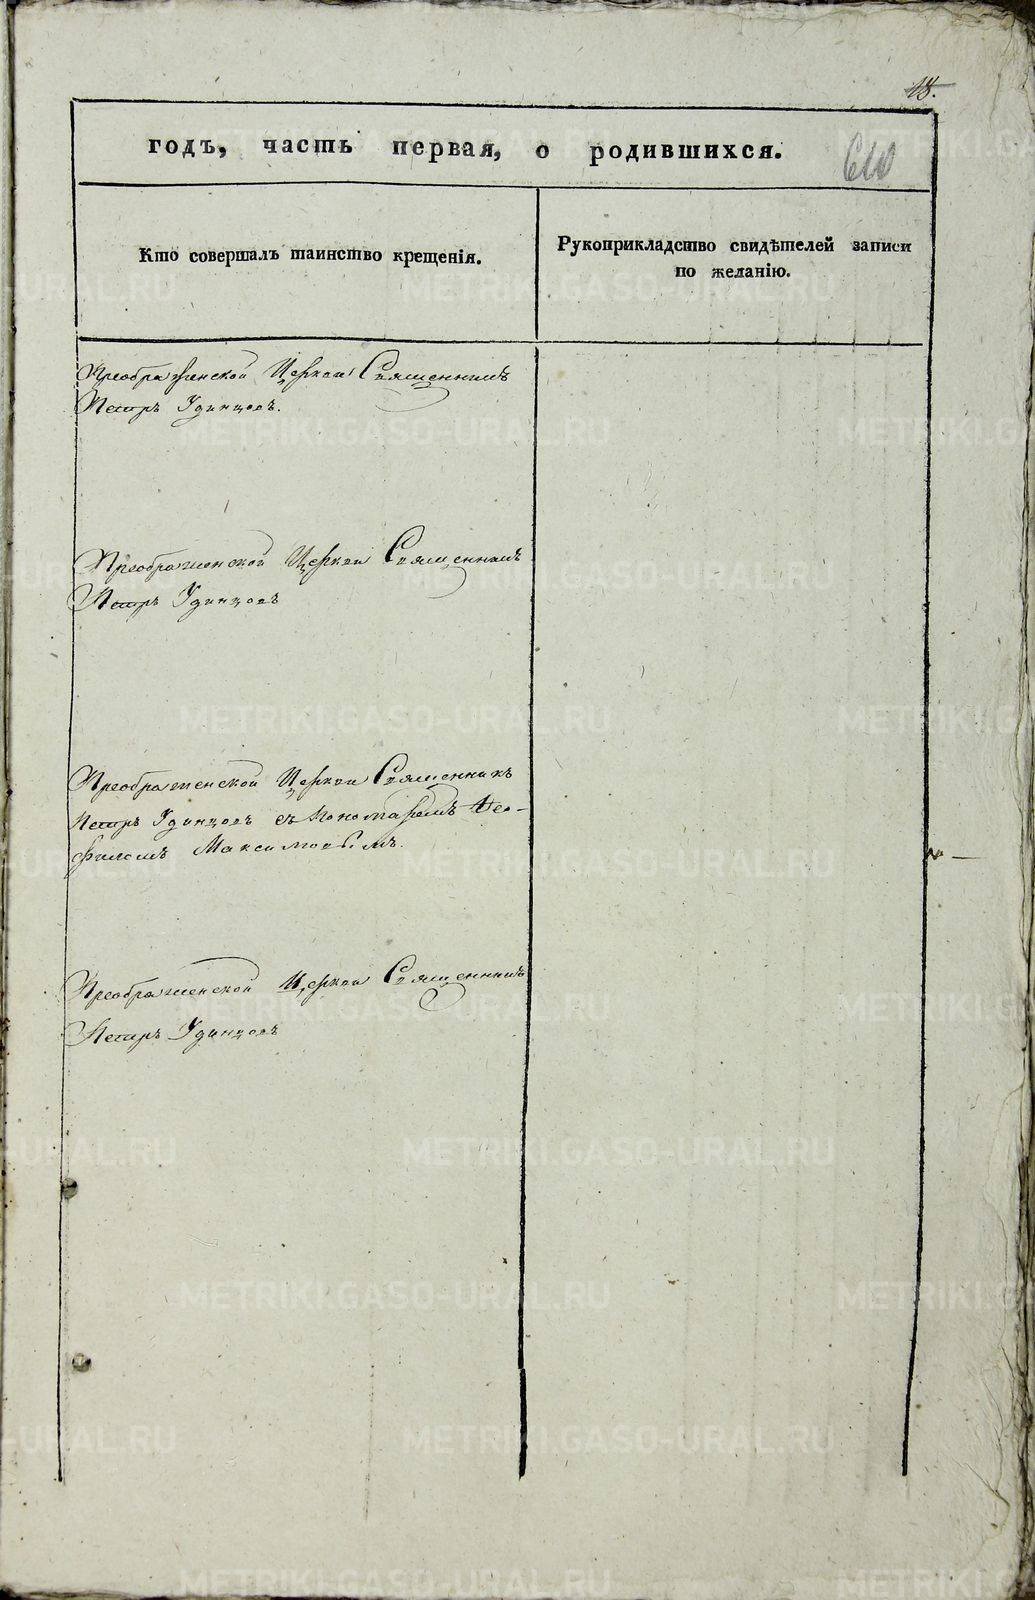 18.
годъ, часть первая, о родившихся.
610
Кто совершалъ таинство крещенія.
Рукоприкладство свидѣтелей записи
по желанію.
Преображенской Церкви Священникъ
Петръ Удинцовъ.
Преображенской Церкви Священникъ
Петръ Удинцовъ
Преображенской Церкви Священникъ
Петръ Удинцовъ съ Пономаремъ Ѳео-
филомъ Максимовымъ.
Преображенской Церкви Священникъ
Петръ Удинцовъ
METRIKI.GASO-URAL.RU